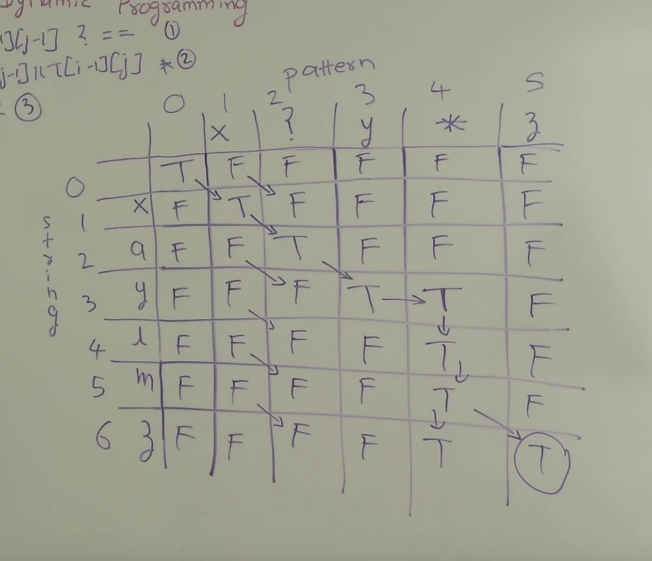 Dynamic Programming
1][j-1] ? == ①
j-1]||T[i-1][j] * ②
③
pattern
0 1 2 3 4 5
x ? y * z
0 T F F F F F
1 x F T F F F F
2 a F F T F F F
3 y F F F T T F
4 l F F F F T F
5 m F F F F T F
6 z F F F F T T
string